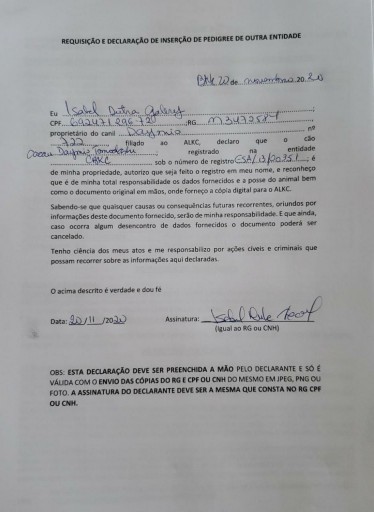 REQUISIÇÃO E DECLARAÇÃO DE INSERÇÃO DE PEDIGREE DE OUTRA ENTIDADE
20 de novembro 2020
Eu Isabel Dutra
CPF RG
proprietário do canil nº
722 filiado ao ALKC, declaro que o cão
registrado na entidade
CBKC sob o número de registro é
de minha propriedade, autorizo que seja feito o registro em meu nome, e reconheço
que é de minha total responsabilidade os dados fornecidos e a posse do animal bem
como o documento original em mãos, onde forneço a cópia digital para o ALKC.
Sabendo-se que quaisquer causas ou consequências futuras recorrentes, oriundos por
informações deste documento fornecido, serão de minha responsabilidade. E que ainda,
caso ocorra algum desencontro de dados fornecidos o documento poderá ser
cancelado.
Tenho ciência dos meus atos e me responsabilizo por ações cíveis e criminais que
possam recorrer sobre as informações aqui declaradas.
O acima descrito é verdade e dou fé
Data: 20/11/2020 Assinatura: Isabel
(Igual ao RG ou CNH)
OBS: ESTA DECLARAÇÃO DEVE SER PREENCHIDA A MÃO PELO DECLARANTE E SÓ É
VÁLIDA COM O ENVIO DAS CÓPIAS DO RG E CPF OU CNH DO MESMO EM JPEG, PNG OU
FOTO. A ASSINATURA DO DECLARANTE DEVE SER A MESMA QUE CONSTA NO RG CPF
OU CNH.